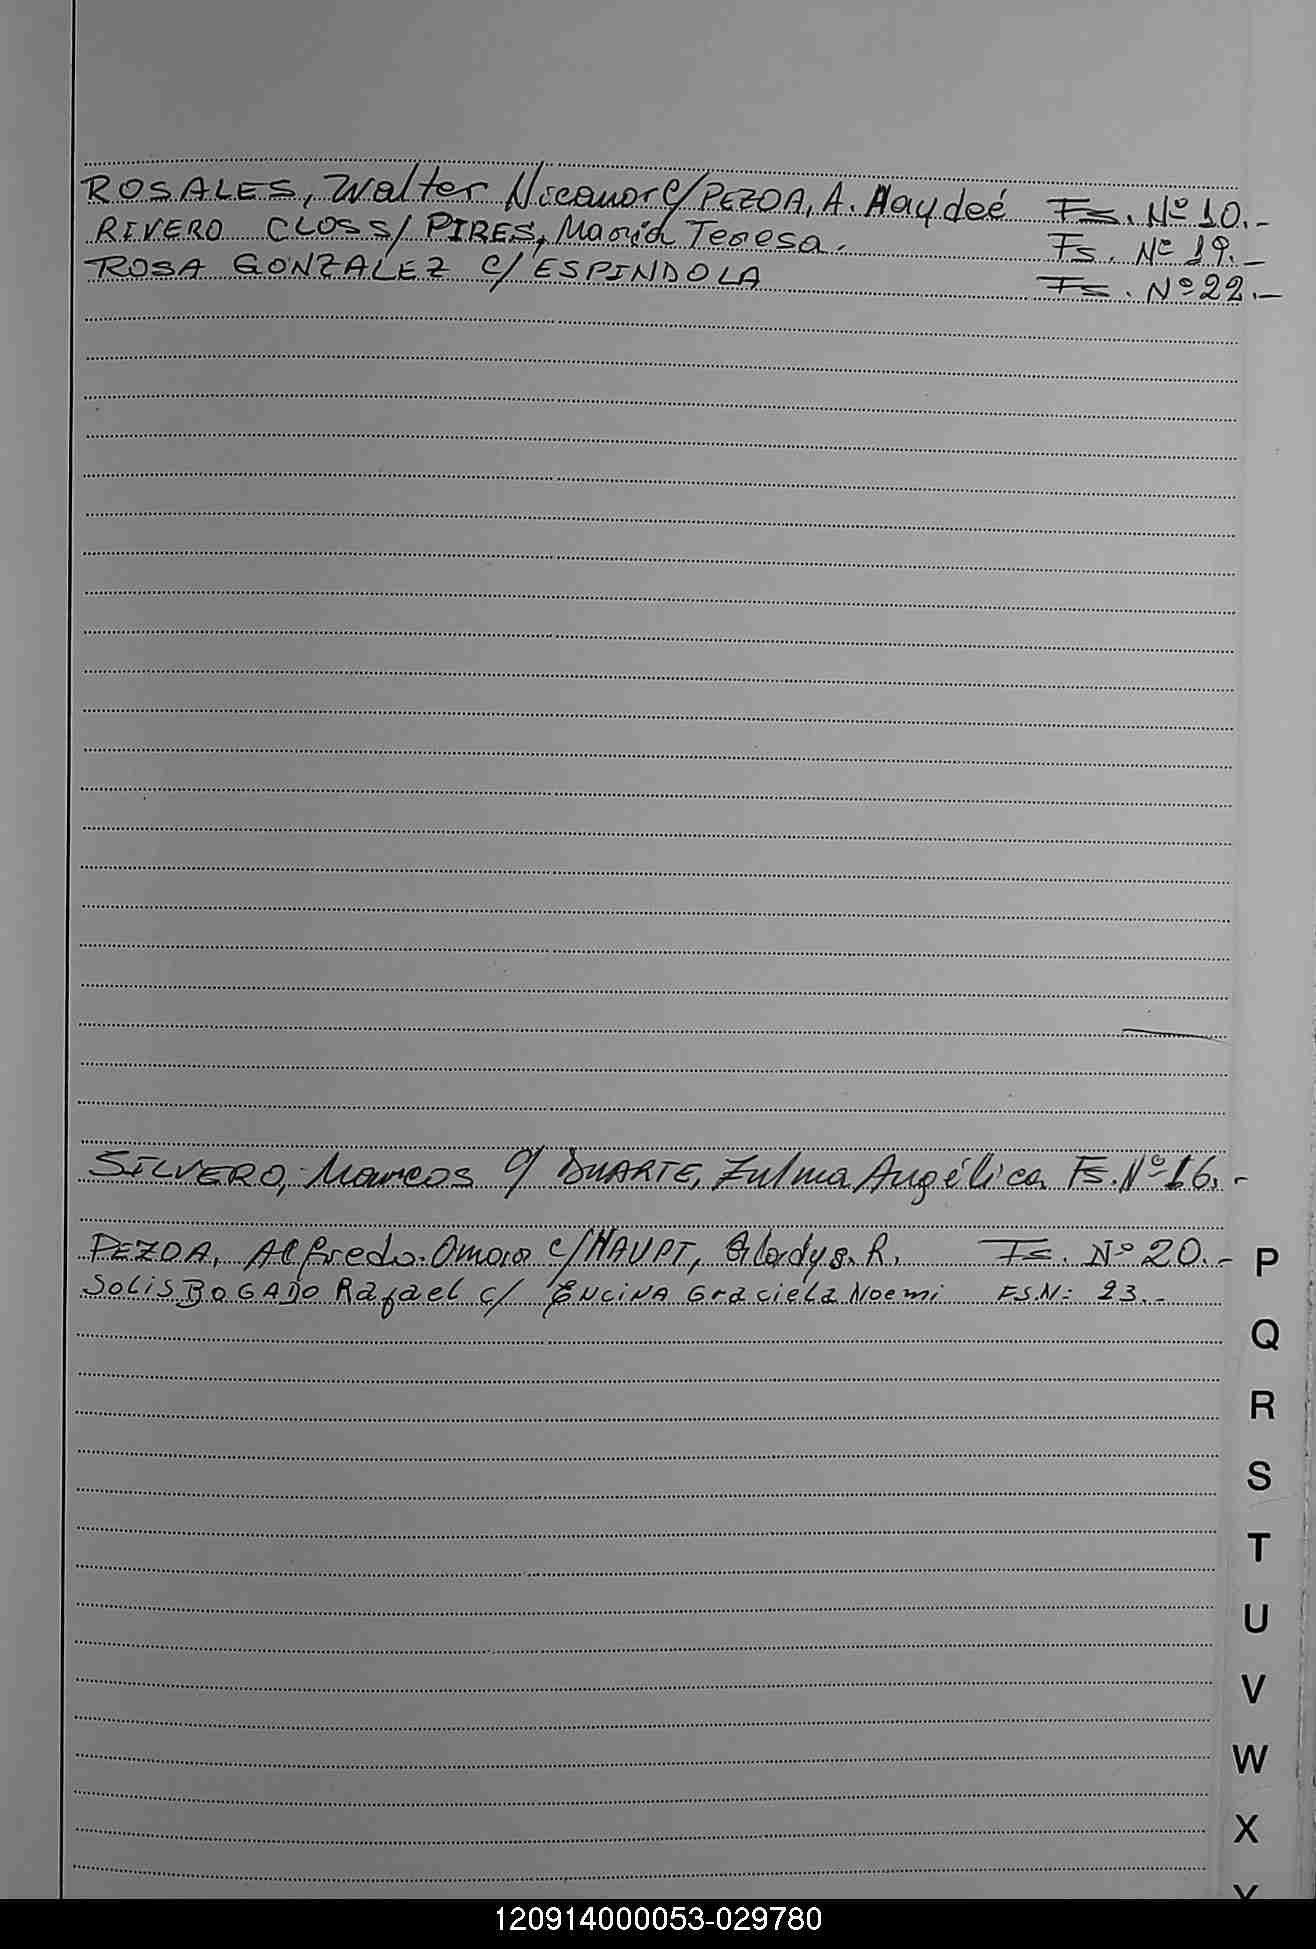 ROSALES, Walter Nicanor c/ PEZOA, A. Haydeé Fs. Nº 10.-
RIVERO CLOSS/ PIRES, María Teresa. Fs. Nº 19.-
ROSA GONZALEZ c/ ESPINDOLA Fs. Nº 22.-
SILVERO, Marcos c/ DUARTE, Zulma Angélica Fs. Nº 16.-
PEZOA, Alfredo Omar c/ HAUPT, Gladys. R. Fs. Nº 20.-
SOLIS BOGADO Rafael c/ ENCINA Graciela Noemi FS.N: 23.-
P
Q
R
S
T
U
V
W
X
Y
120914000053-029780